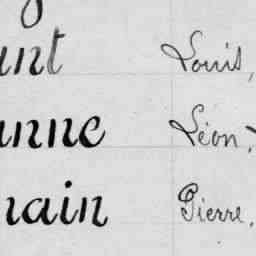 unt Louis,
nne Léon,
main Pierre,